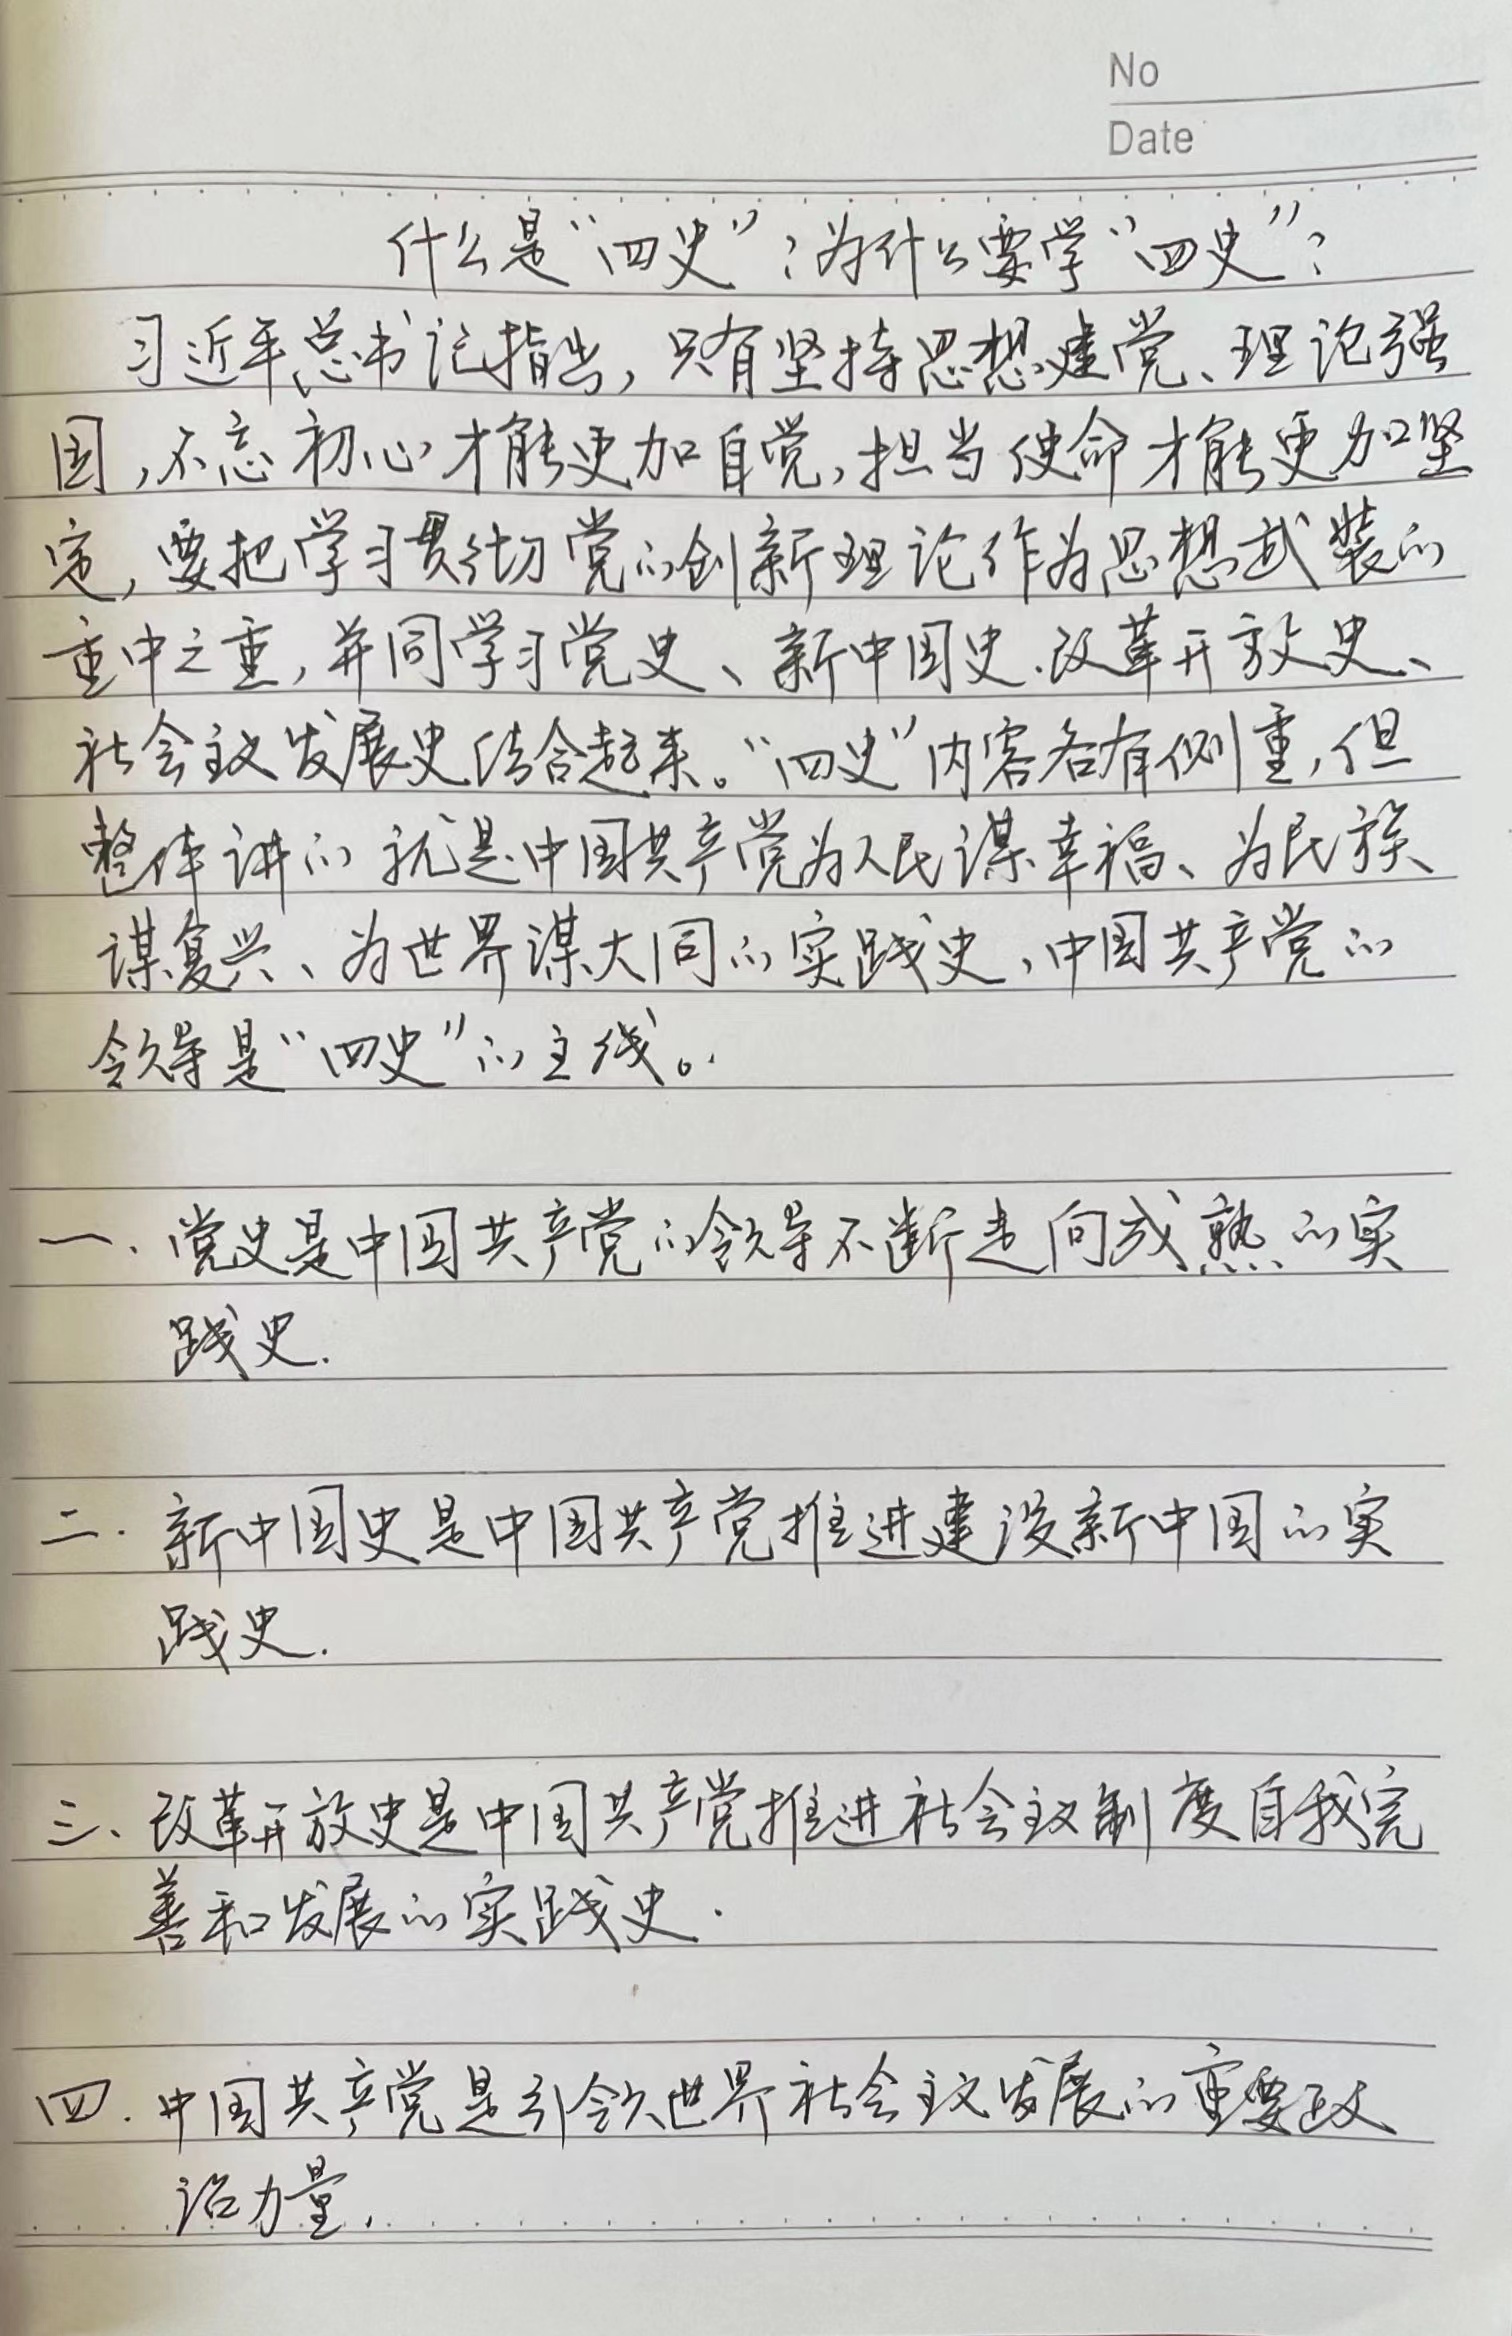 No
Date
什么是“四史”？为什么要学“四史”？
习近平总书记指出，只有坚持思想建党、理论强
国，不忘初心才能更加自觉，担当使命才能更加坚
定，要把学习贯彻党的创新理论作为思想武装的
重中之重，并同学习党史、新中国史、改革开放史、
社会主义发展史结合起来。“四史”内容各有侧重，但
整体讲的就是中国共产党为人民谋幸福、为民族
谋复兴、为世界谋大同的实践史，中国共产党的
领导是“四史”的主线。
一、党史是中国共产党的领导不断走向成熟的实
践史.
二. 新中国史是中国共产党推进建设新中国的实
践史.
三、改革开放史是中国共产党推进社会主义制度自我完
善和发展的实践史.
四. 中国共产党是引领世界社会主义发展的重要政
治力量.